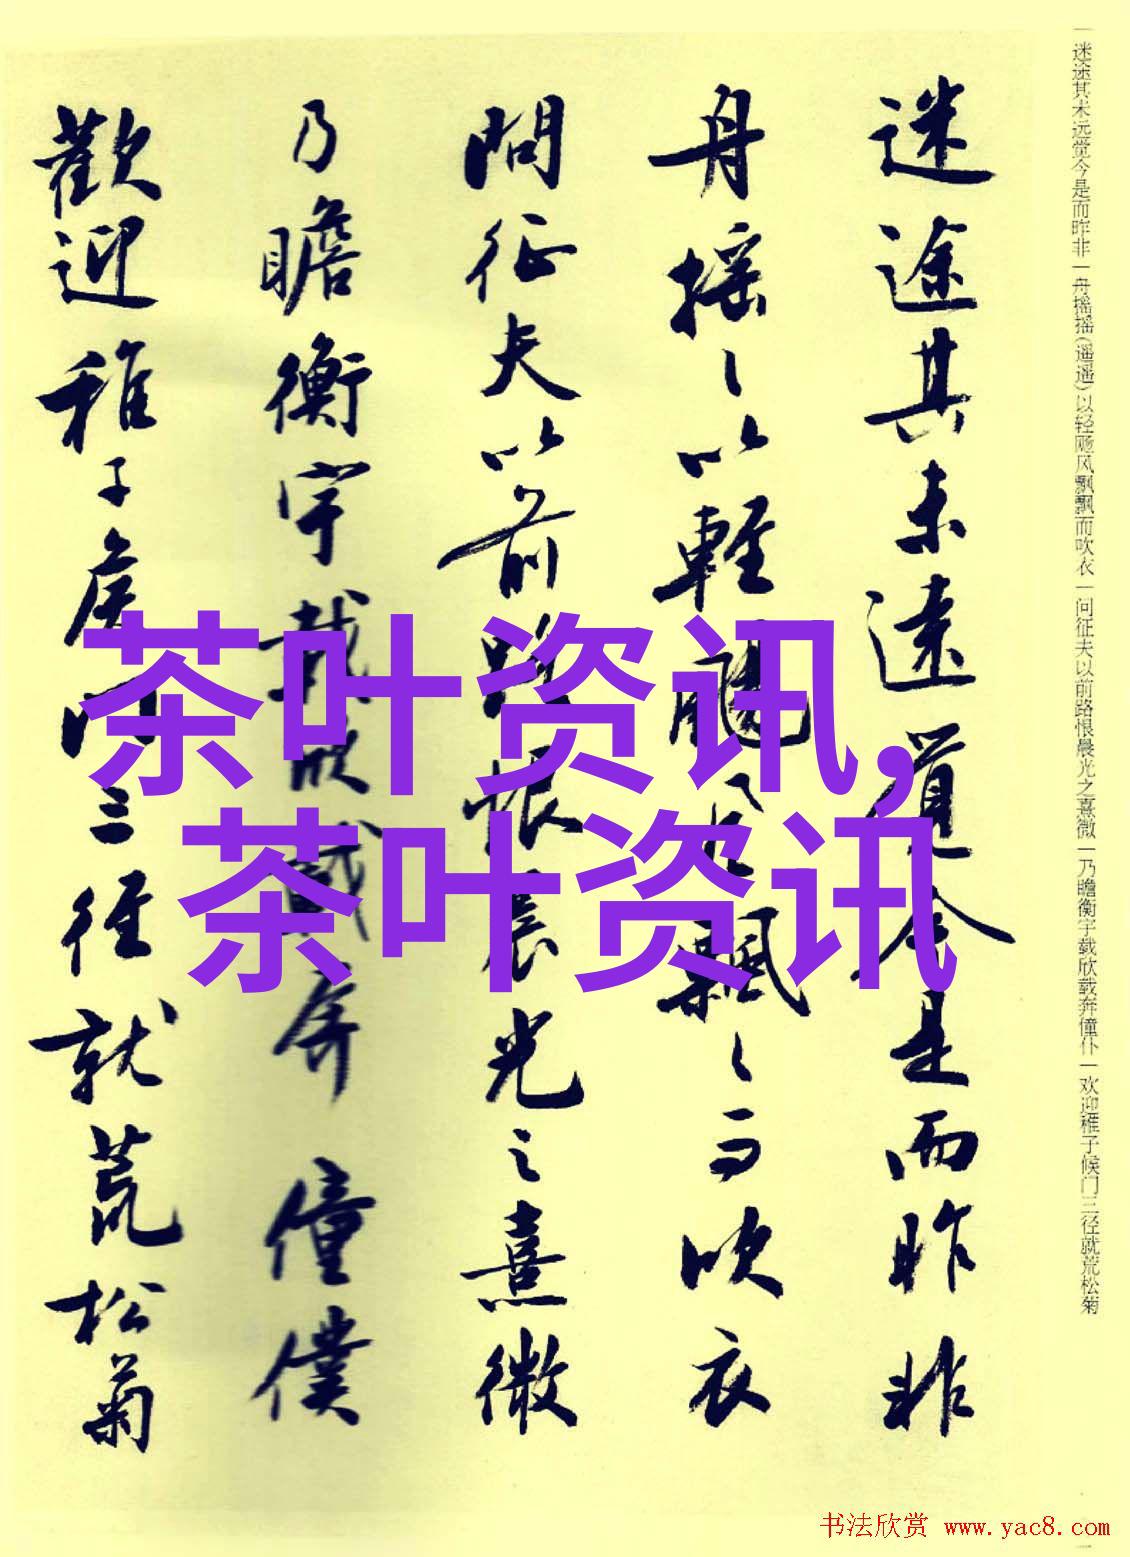 迷途其未远觉今是而昨非一舟摇摇(遥遥)以轻飏风飘飘而吹衣一问征夫以前路恨晨光之熹微一乃瞻衡宇载欣载奔僮仆一欢迎稚子候门三径就荒松菊
迷途其未遠覺今是而昨非
舟摇〻以輕颺風飄〻而吹衣
問征夫以前路恨晨光之熹微
乃瞻衡宇載欣載奔僮僕
歡迎稚子候門三徑就荒松菊
茶叶资讯,
茶叶资讯
书法欣赏 www.yac8.com